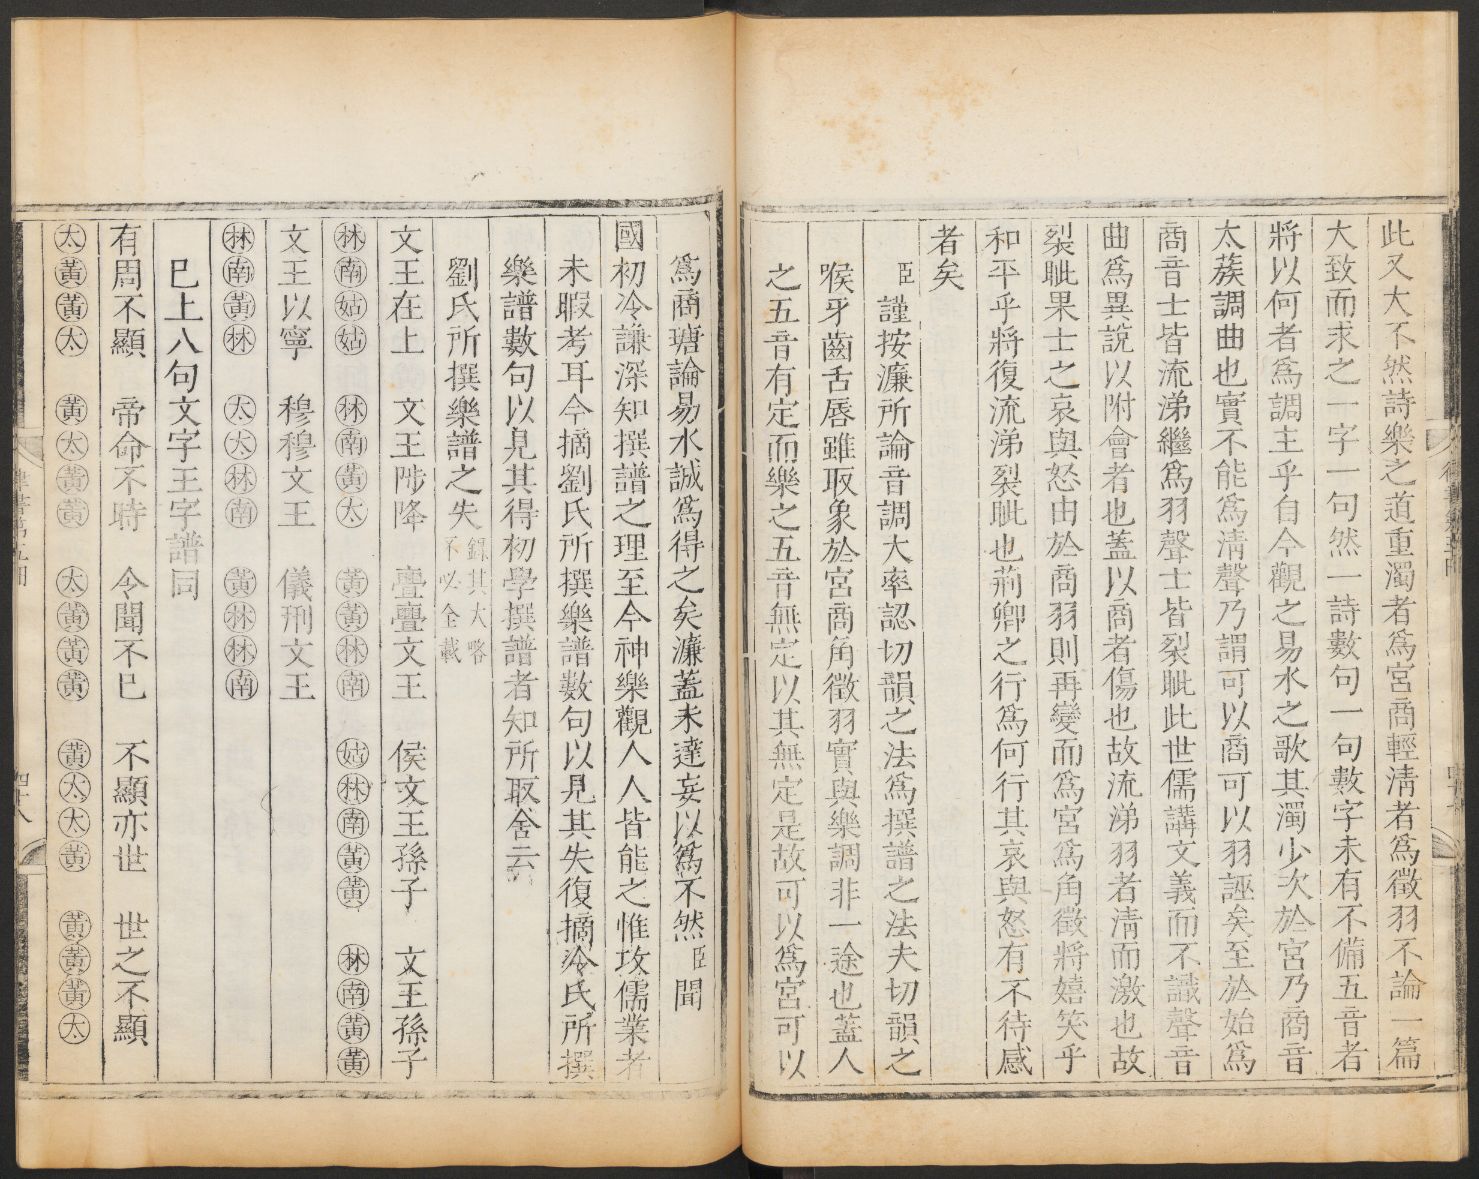 此又大不然詩樂之道重濁者爲宮商輕清者爲徵羽不論一篇
大致而求之一字一句然一詩數句一句數字未有不備五音者
將以何者爲調主乎自今觀之易水之歌其濁少次於宮乃商音
太蔟調曲也實不能爲清聲乃謂可以商可以羽誣矣至於始爲
商音士皆流涕繼爲羽聲士皆裂眦此世儒講文義而不識聲音
曲爲異說以附會者也蓋以商者傷也故流涕羽者清而激也故
裂眦果士之哀與怒由於商羽則再變而爲宮爲角徵將嬉笑乎
和平乎將復流涕裂眦也荊卿之行爲何行其哀與怒有不待感
者矣
臣謹按濂所論音調大率認切韻之法爲撰譜之法夫切韻之
喉牙齒舌唇雖取象於宮商角徵羽實與樂調非一途也蓋人
之五音有定而樂之五音無定以其無定是故可以爲宮可以
爲商瑭論易水誠爲得之矣濂蓋未達妄以爲不然臣聞
國初冷謙深知撰譜之理至今神樂觀人人皆能之惟攻儒業者
未暇考耳今摘劉氏所撰樂譜數句以見其失復摘冷氏所撰
樂譜數句以見其得初學撰譜者知所取舍云
劉氏所撰樂譜之失 錄其大略不必全載
文王在上 文王陟降 亹亹文王 侯文王孫子 文王孫子
林南姑姑 林南黃太 黃黃林南 姑林南黃黃 林南黃黃
文王以寧 穆穆文王 儀刑文王
林南黃林 太太林南 黃林林南
已上八句文字王字譜同
有周不顯 帝命不時 令聞不已 不顯亦世 世之不顯
太黃黃太 黃太黃黃 太黃黃黃 黃太太黃 黃黃黃太